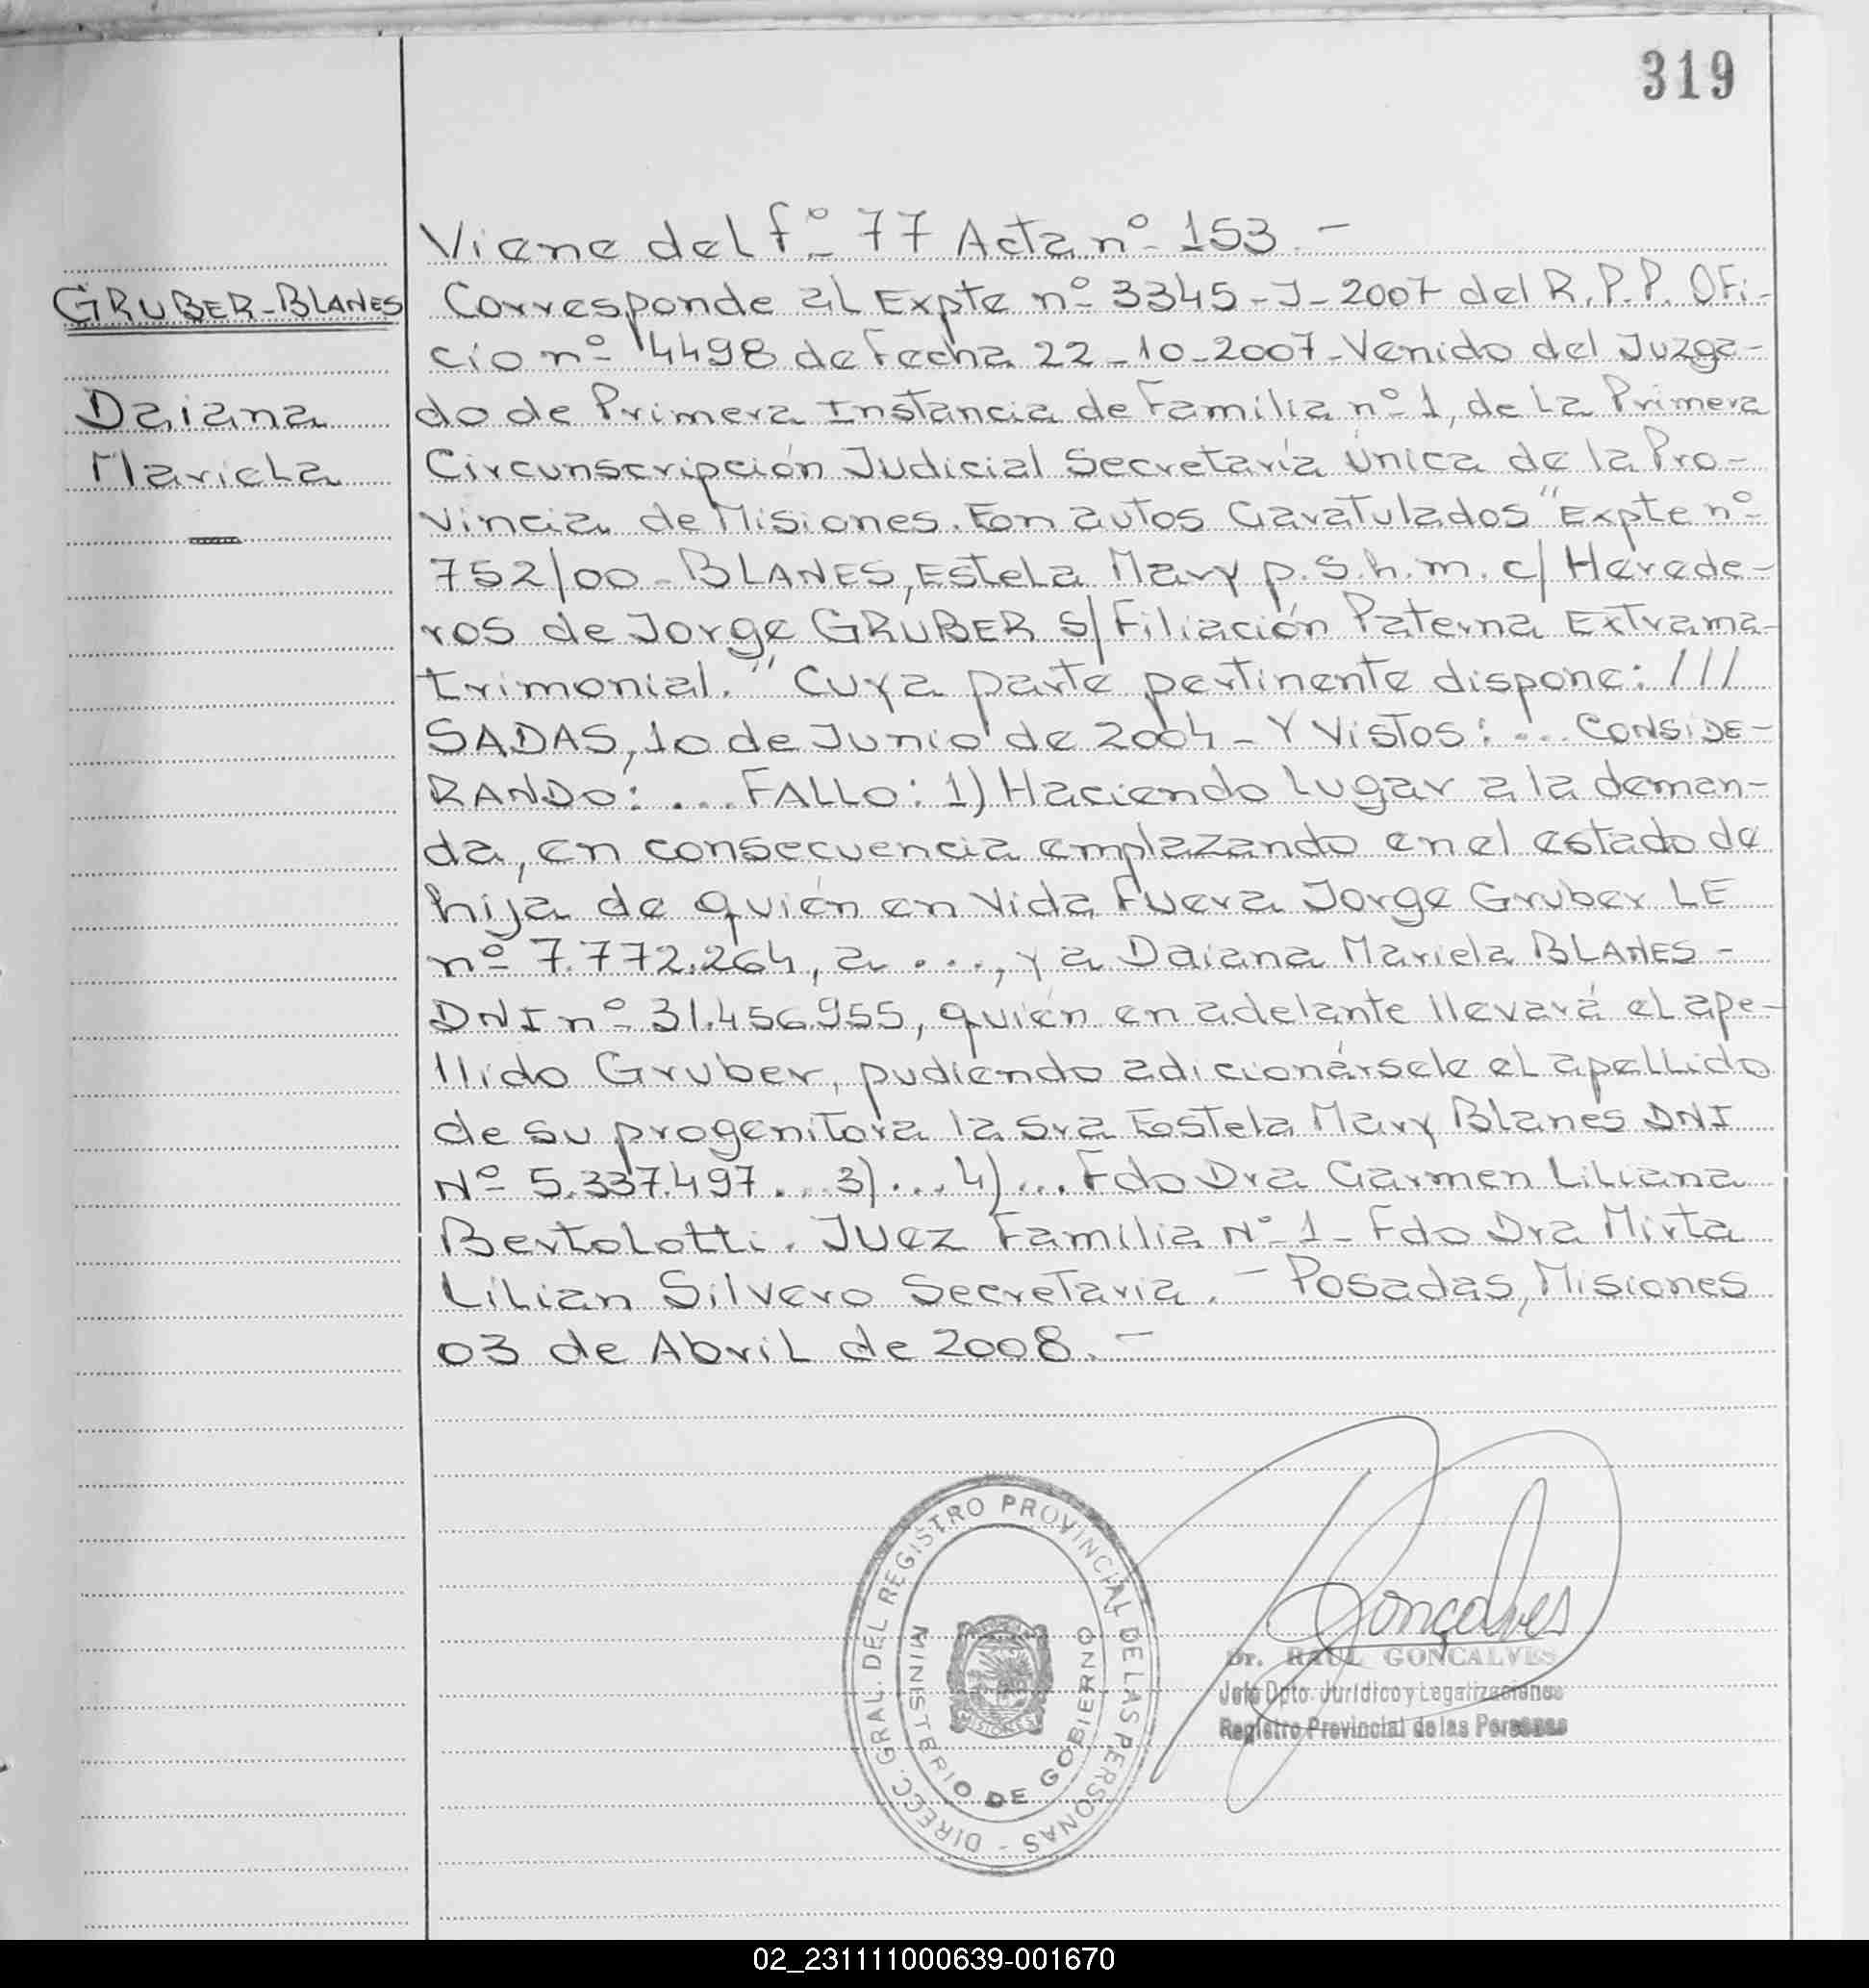 319
Viene del fº 77 Acta nº 153.-
GRUBER-BLANES
Daiana
Mariela
Corresponde al Expte nº 3345-J-2007 del R.P.P. Ofi-
cio nº 4498 de Fecha 22-10-2007-Venido del Juzga-
do de Primera Instancia de Familia nº 1, de La Primera
Circunscripción Judicial Secretaría Única de la Pro-
vincia de Misiones. En autos Caratulados "Expte nº
752/00-BLANES, Estela Mary p.s.h.m. c/ Herede-
ros de Jorge GRUBER s/ Filiación Paterna Extrama-
trimonial." Cuya parte pertinente dispone: ///
SADAS, 10 de Junio de 2004- Y Vistos: ... CONSIDE-
RANDO: ... FALLO: 1) Haciendo lugar a la deman-
da, en consecuencia emplazando en el estado de
hija de quién en vida fuera Jorge Gruber LE
nº 7.772.264, a ..., y a Daiana Mariela BLANES-
DNI nº 31.456.955, quién en adelante llevará el ape-
llido Gruber, pudiendo adicionársele el apellido
de su progenitora la Sra Estela Mary Blanes DNI
Nº 5.337.497... 3)... 4)... Fdo Dra Carmen Liliana
Bertolotti. Juez Familia Nº 1- Fdo Dra Mirta
Lilian Silvero Secretaria. - Posadas, Misiones
03 de Abril de 2008.-
DIRECC. GRAL. DEL REGISTRO PROVINCIAL DE LAS PERSONAS -
MINISTERIO DE GOBIERNO
MISIONES
Gonçalves
Dr. RAUL GONÇALVES
Jefe Dpto. Jurídico y Legalizaciones
Registro Provincial de las Personas
02_231111000639-001670